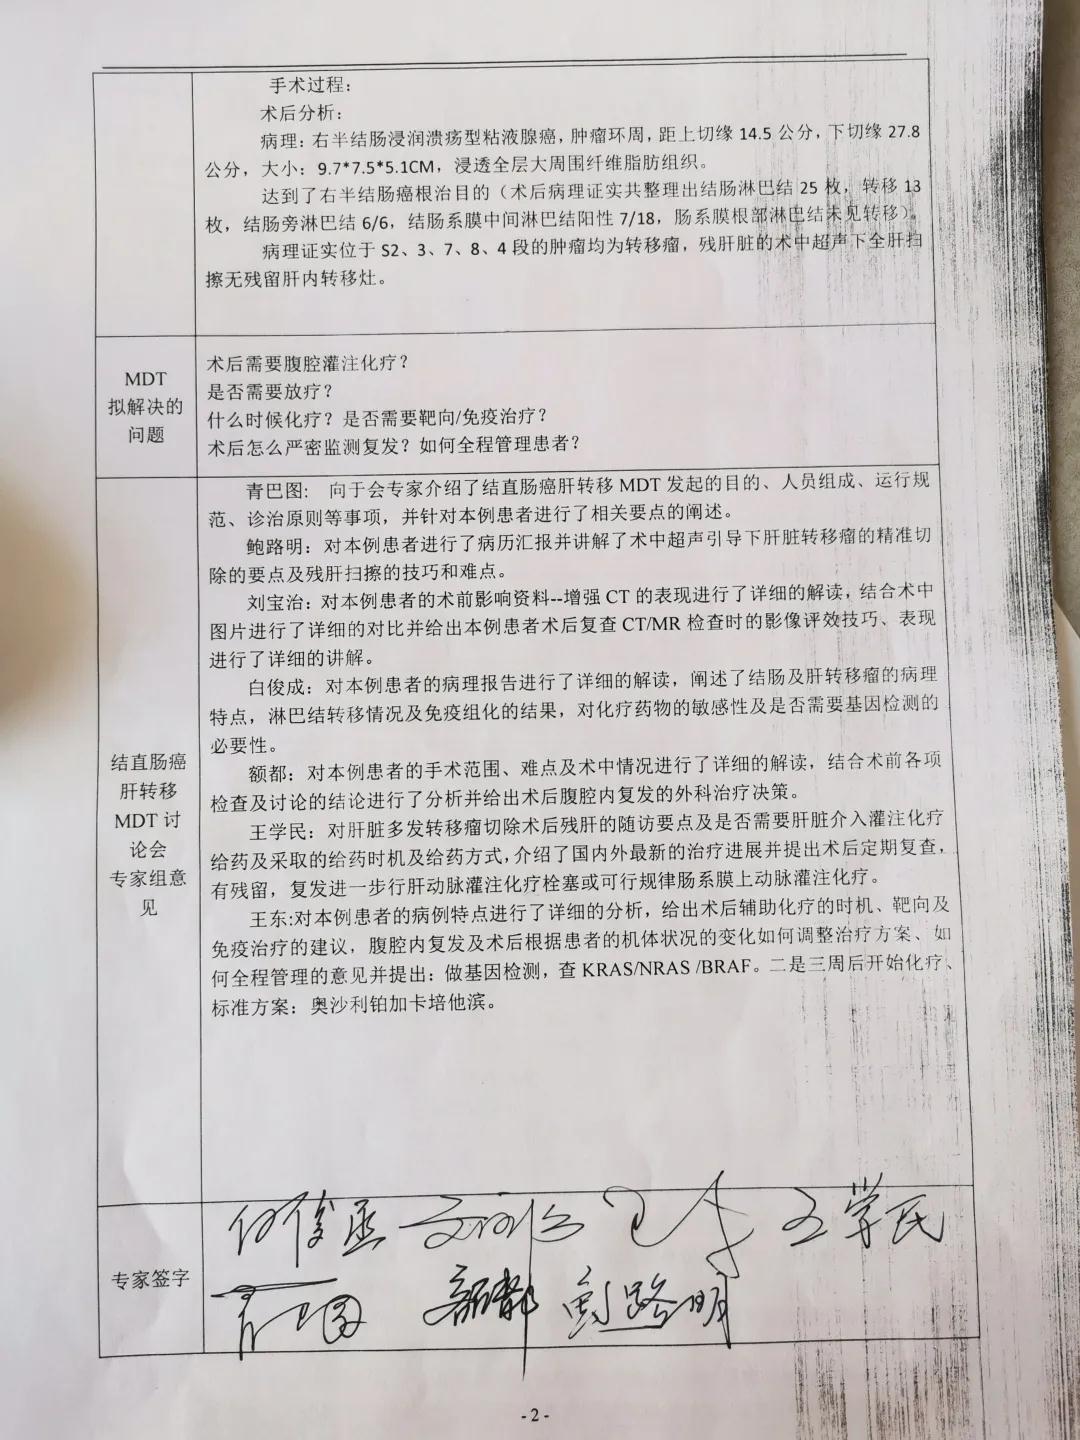 手术过程：
术后分析：
病理：右半结肠浸润溃疡型粘液腺癌，肿瘤环周，距上切缘 14.5 公分，下切缘 27.8
公分，大小：9.7*7.5*5.1CM，浸透全层大周围纤维脂肪组织。
达到了右半结肠癌根治目的（术后病理证实共整理出结肠淋巴结 25 枚，转移 13
枚，结肠旁淋巴结 6/6，结肠系膜中间淋巴结阳性 7/18，肠系膜根部淋巴结未见转移）。
病理证实位于 S2、3、7、8、4 段的肿瘤均为转移瘤，残肝脏的术中超声下全肝扫
擦无残留肝内转移灶。
MDT
拟解决的
问题
术后需要腹腔灌注化疗？
是否需要放疗？
什么时候化疗？是否需要靶向/免疫治疗？
术后怎么严密监测复发？如何全程管理患者？
结直肠癌
肝转移
MDT 讨
论会
专家组意
见
青巴图：  向于会专家介绍了结直肠癌肝转移 MDT 发起的目的、人员组成、运行规
范、诊治原则等事项，并针对本例患者进行了相关要点的阐述。
鲍路明：对本例患者进行了病历汇报并讲解了术中超声引导下肝脏转移瘤的精准切
除的要点及残肝扫擦的技巧和难点。
刘宝治：对本例患者的术前影响资料--增强 CT 的表现进行了详细的解读，结合术中
图片进行了详细的对比并给出本例患者术后复查 CT/MR 检查时的影像评效技巧、表现
进行了详细的讲解。
白俊成：对本例患者的病理报告进行了详细的解读，阐述了结肠及肝转移瘤的病理
特点，淋巴结转移情况及免疫组化的结果，对化疗药物的敏感性及是否需要基因检测的
必要性。
额都：对本例患者的手术范围、难点及术中情况进行了详细的解读，结合术前各项
检查及讨论的结论进行了分析并给出术后腹腔内复发的外科治疗决策。
王学民：对肝脏多发转移瘤切除术后残肝的随访要点及是否需要肝脏介入灌注化疗
给药及采取的给药时机及给药方式，介绍了国内外最新的治疗进展并提出术后定期复查，
有残留，复发进一步行肝动脉灌注化疗栓塞或可行规律肠系膜上动脉灌注化疗。
王东:对本例患者的病例特点进行了详细的分析，给出术后辅助化疗的时机、靶向及
免疫治疗的建议，腹腔内复发及术后根据患者的机体状况的变化如何调整治疗方案、如
何全程管理的意见并提出：做基因检测，查 KRAS/NRAS /BRAF。二是三周后开始化疗、
标准方案：奥沙利铂加卡培他滨。
专家签字
王学民
额都 路明
- 2 -